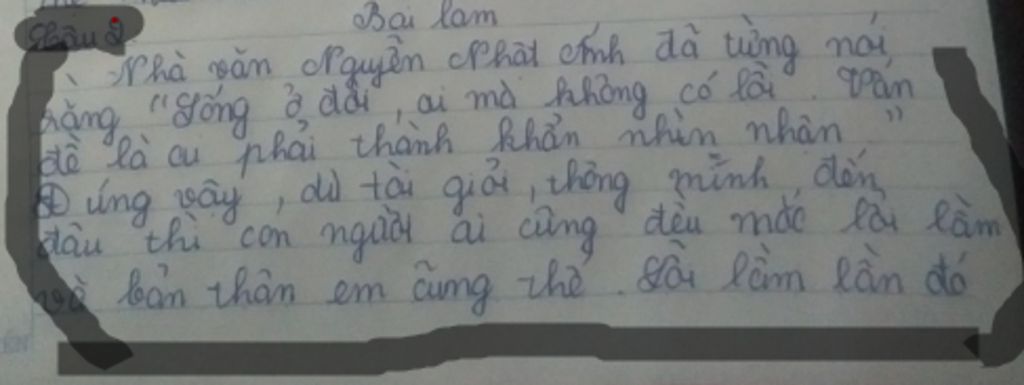 Bài làm
Câu 2
Nhà văn Nguyễn Nhật Ánh đã từng nói
rằng "Sống ở đời, ai mà không có lỗi. Vấn
đề là cu phải thành khẩn nhìn nhận"
Đúng vậy, dù tài giỏi, thông mĩnh đến
đâu thì con người ai cũng đều mắc lỗi lầm
và bản thân em cũng thế. Lỗi lầm lần đó